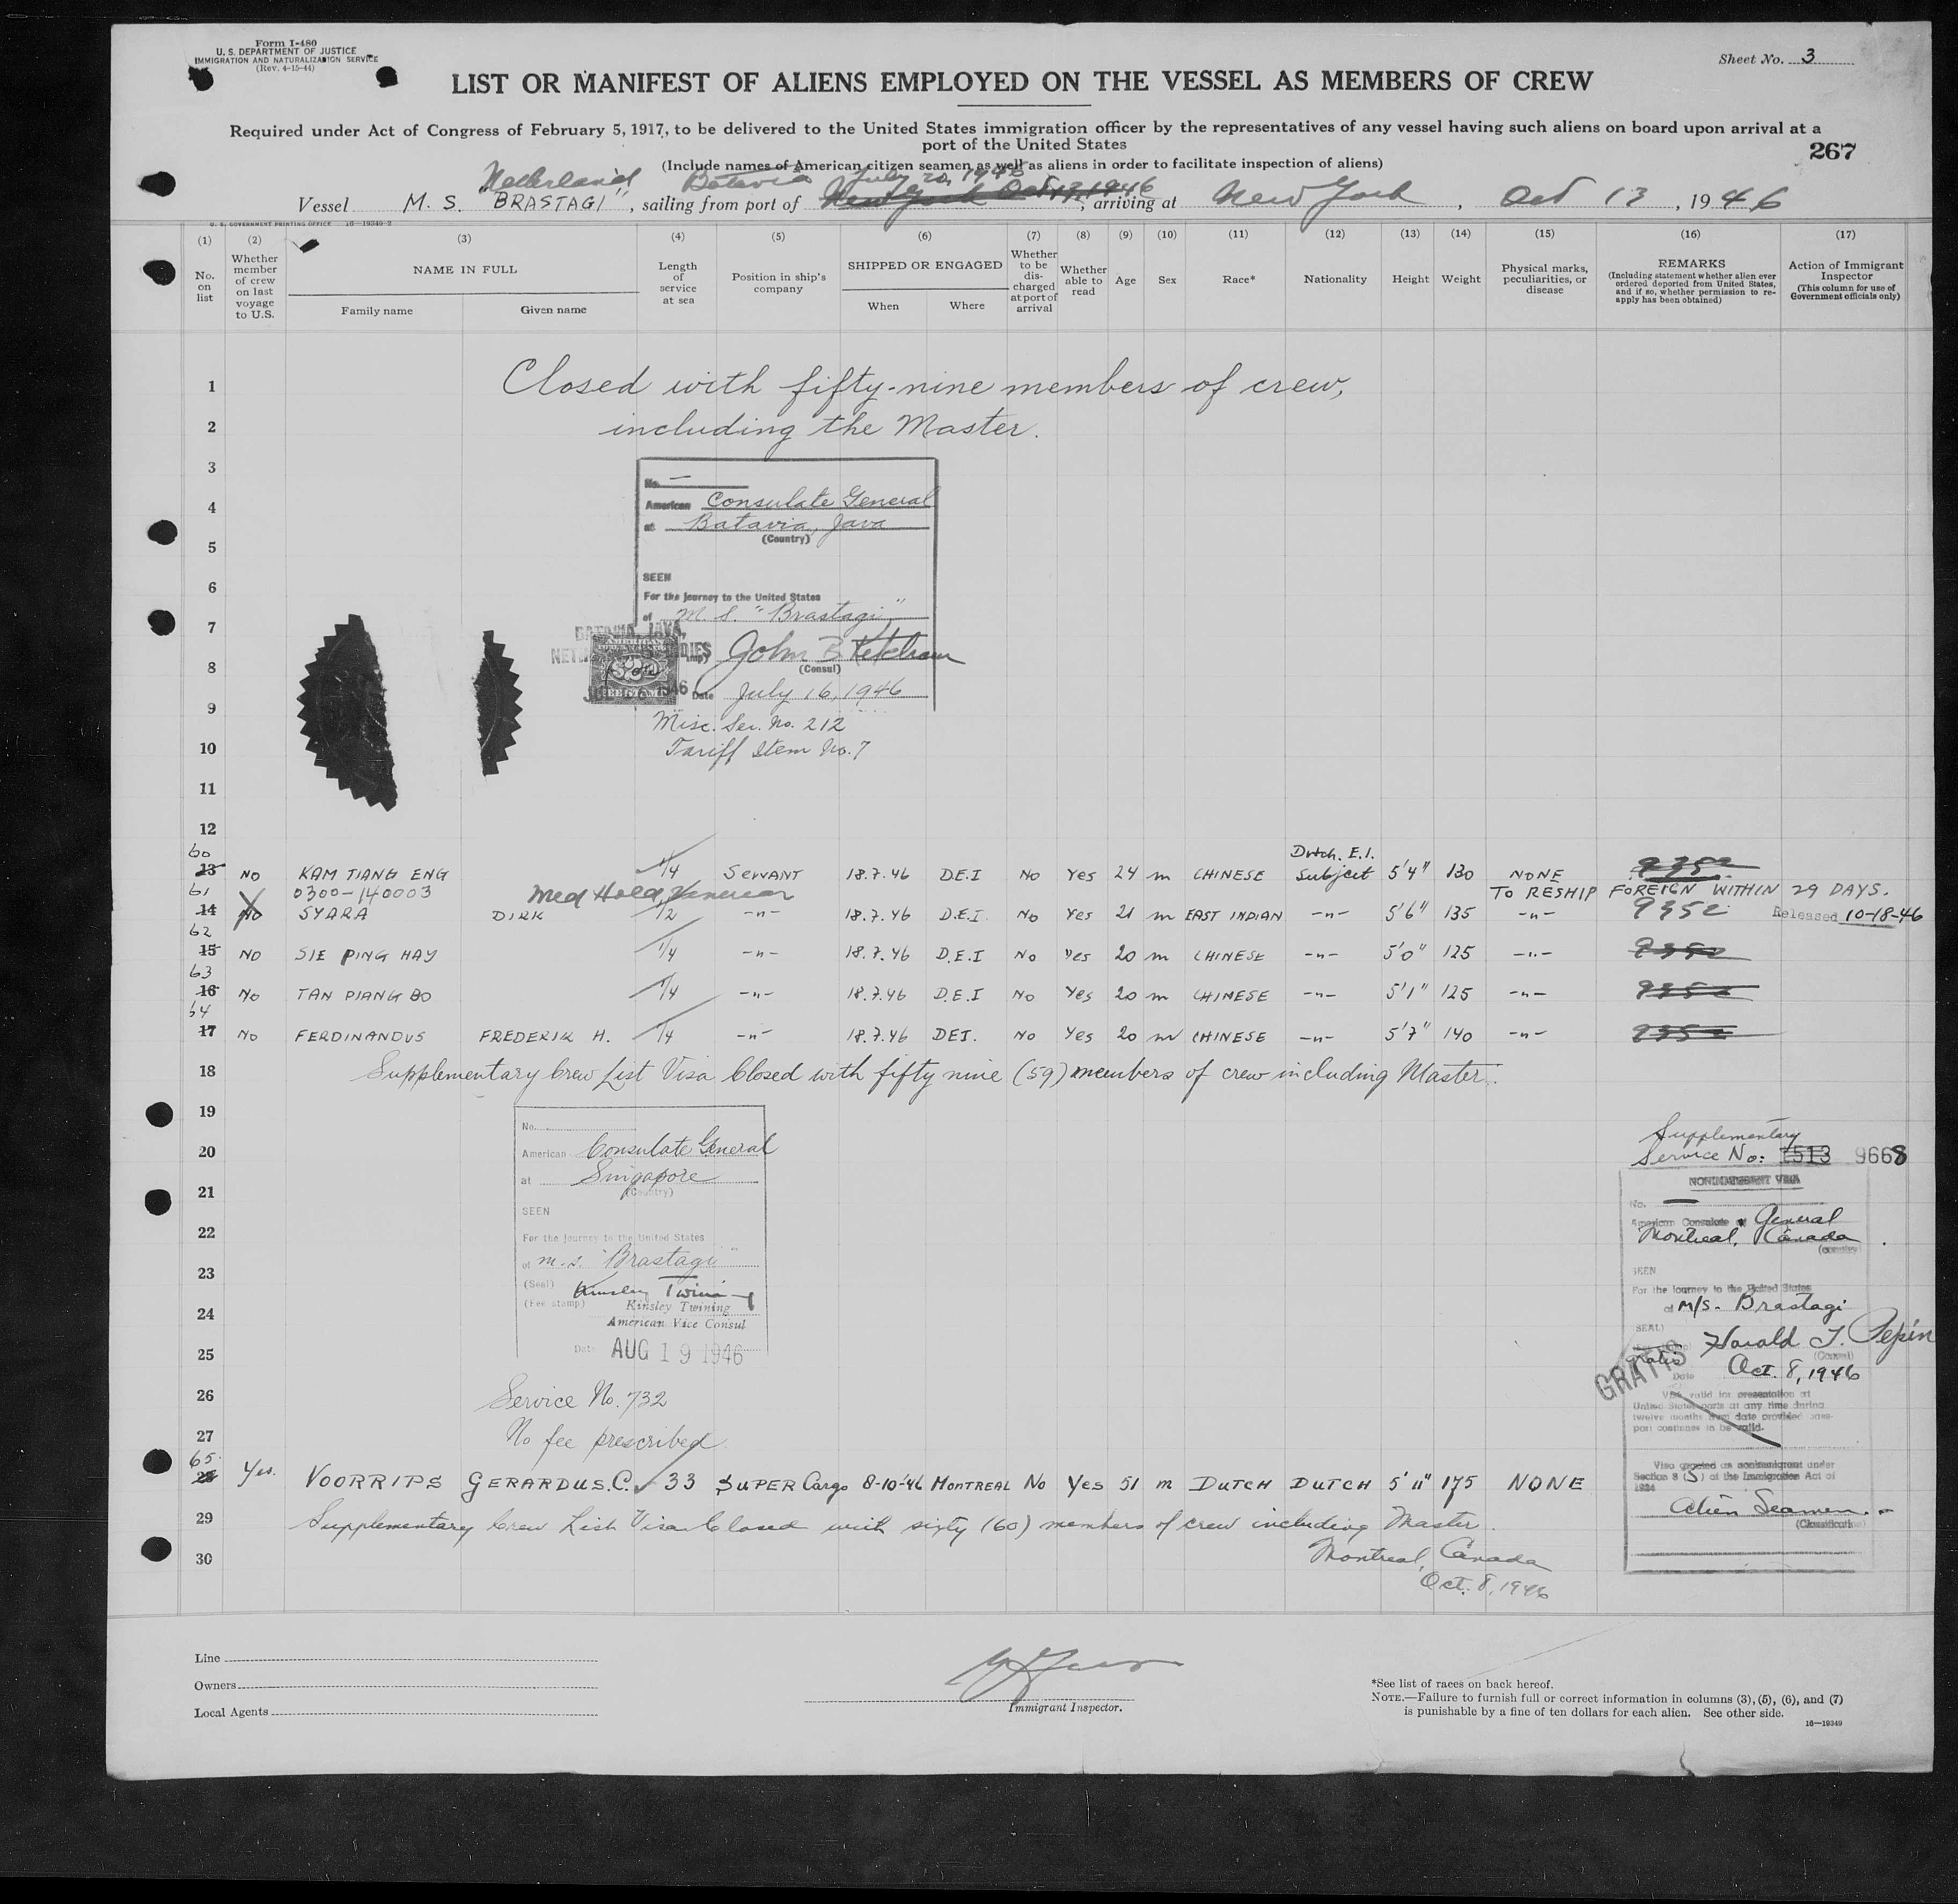 Form I-480
U. S. DEPARTMENT OF JUSTICE
IMMIGRATION AND NATURALIZATION SERVICE
(Rev. 4-15-44)
Sheet No. 3
LIST OR MANIFEST OF ALIENS EMPLOYED ON THE VESSEL AS MEMBERS OF CREW
Required under Act of Congress of February 5, 1917, to be delivered to the United States immigration officer by the representatives of any vessel having such aliens on board upon arrival at a
port of the United States
267
(Include names of American citizen seamen as well as aliens in order to facilitate inspection of aliens)
Netherland Batavia July 20, 1946
Vessel M. S. "BRASTAGI", sailing from port of New York Oct 13, 1946, arriving at New York, Oct 13, 1946
U. S. GOVERNMENT PRINTING OFFICE 16—19349-2
(1) (2) (3) (4) (5) (6) (7) (8) (9) (10) (11) (12) (13) (14) (15) (16) (17)
No. on list
Whether member of crew on last voyage to U.S.
NAME IN FULL
Family name Given name
Length of service at sea
Position in ship's company
SHIPPED OR ENGAGED
When Where
Whether to be discharged at port of arrival
Whether able to read
Age
Sex
Race*
Nationality
Height
Weight
Physical marks, peculiarities, or disease
REMARKS
(Including statement whether alien ever ordered deported from United States, and if so, whether permission to reapply has been obtained)
Action of Immigrant Inspector
(This column for use of Government officials only)
1 Closed with fifty-nine members of crew,
2 including the Master.
3
No. —
4 American Consulate General
at Batavia, Java
5 (Country)
6 SEEN
For the journey to the United States
of M. S. "Brastagi"
7 BATAVIA, JAVA,
8 John B. Ketcham
(Consul)
Date July 16, 1946
9 Misc. Ser. No. 212
10 Tariff Item No. 7
11
12
60 Dutch. E.I.
13 No KAM TIANG ENG 1/4 SERVANT 18.7.46 D.E.I No Yes 24 m CHINESE Subject 5'4" 130 NONE 9352
61 0300-140003 Med Held, TO RESHIP FOREIGN WITHIN 29 DAYS.
14 No SYARA DIRK 1/2 -"- 18.7.46 D.E.I. No Yes 21 m EAST INDIAN -"- 5'6" 135 -"- 9352 Released 10-18-46
62
15 NO SIE PING HAY 1/4 -"- 18.7.46 D.E.I No Yes 20 m CHINESE -"- 5'0" 125 -"- 9352
63
16 No TAN PIANG BO 1/4 -"- 18.7.46 D.E.I No Yes 20 m CHINESE -"- 5'1" 125 -"- 9352
64
17 No FERDINANDUS FREDERIK H. 1/4 -"- 18.7.46 DEI. No Yes 20 m CHINESE -"- 5'7" 140 -"- 9352
18 Supplementary Crew List Visa Closed with fifty nine (59) members of crew including Master.
19
No.
20 American Consulate General
at Singapore
21 (Country)
SEEN
22 For the journey to the United States
of m.s. "Brastagi"
23 (Seal) Kinsley Twining
(Fee stamp) Kinsley Twining
24 American Vice Consul
25 Date AUG 19 1946
26 Service No. 732
27 No fee prescribed
Supplementary
Service No: 1513 9668
NONIMMIGRANT VISA
No. —
American Consulate General
Montreal, Canada
(country)
SEEN
For the journey to the United States
of M/S. Brastagi
(SEAL)
Harald T. Pepin
(Consul)
gratis
GRATIS
Date Oct. 8, 1946
Visa valid for presentation at
United States ports at any time during
twelve months from date provided pass-
port continues to be valid.
Visa granted as nonimmigrant under
Section 3 (5) of the Immigration Act of
1924
Alien Seamen.
(Classification)
65
28 Yes. VOORRIPS GERARDUS.C. 33 SUPER Cargo 8-10-'46 MONTREAL No Yes 51 m DUTCH DUTCH 5' 11" 175 NONE
29 Supplementary Crew List Visa Closed with sixty (60) members of crew including Master.
30 Montreal, Canada
Oct. 8, 1946
Line
Owners
Local Agents
Immigrant Inspector.
*See list of races on back hereof.
NOTE.—Failure to furnish full or correct information in columns (3), (5), (6), and (7)
is punishable by a fine of ten dollars for each alien. See other side.
16—19349